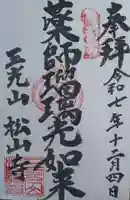 奉拝
令和七年十二月四日
薬師瑠璃光如来
玉光山
松山寺